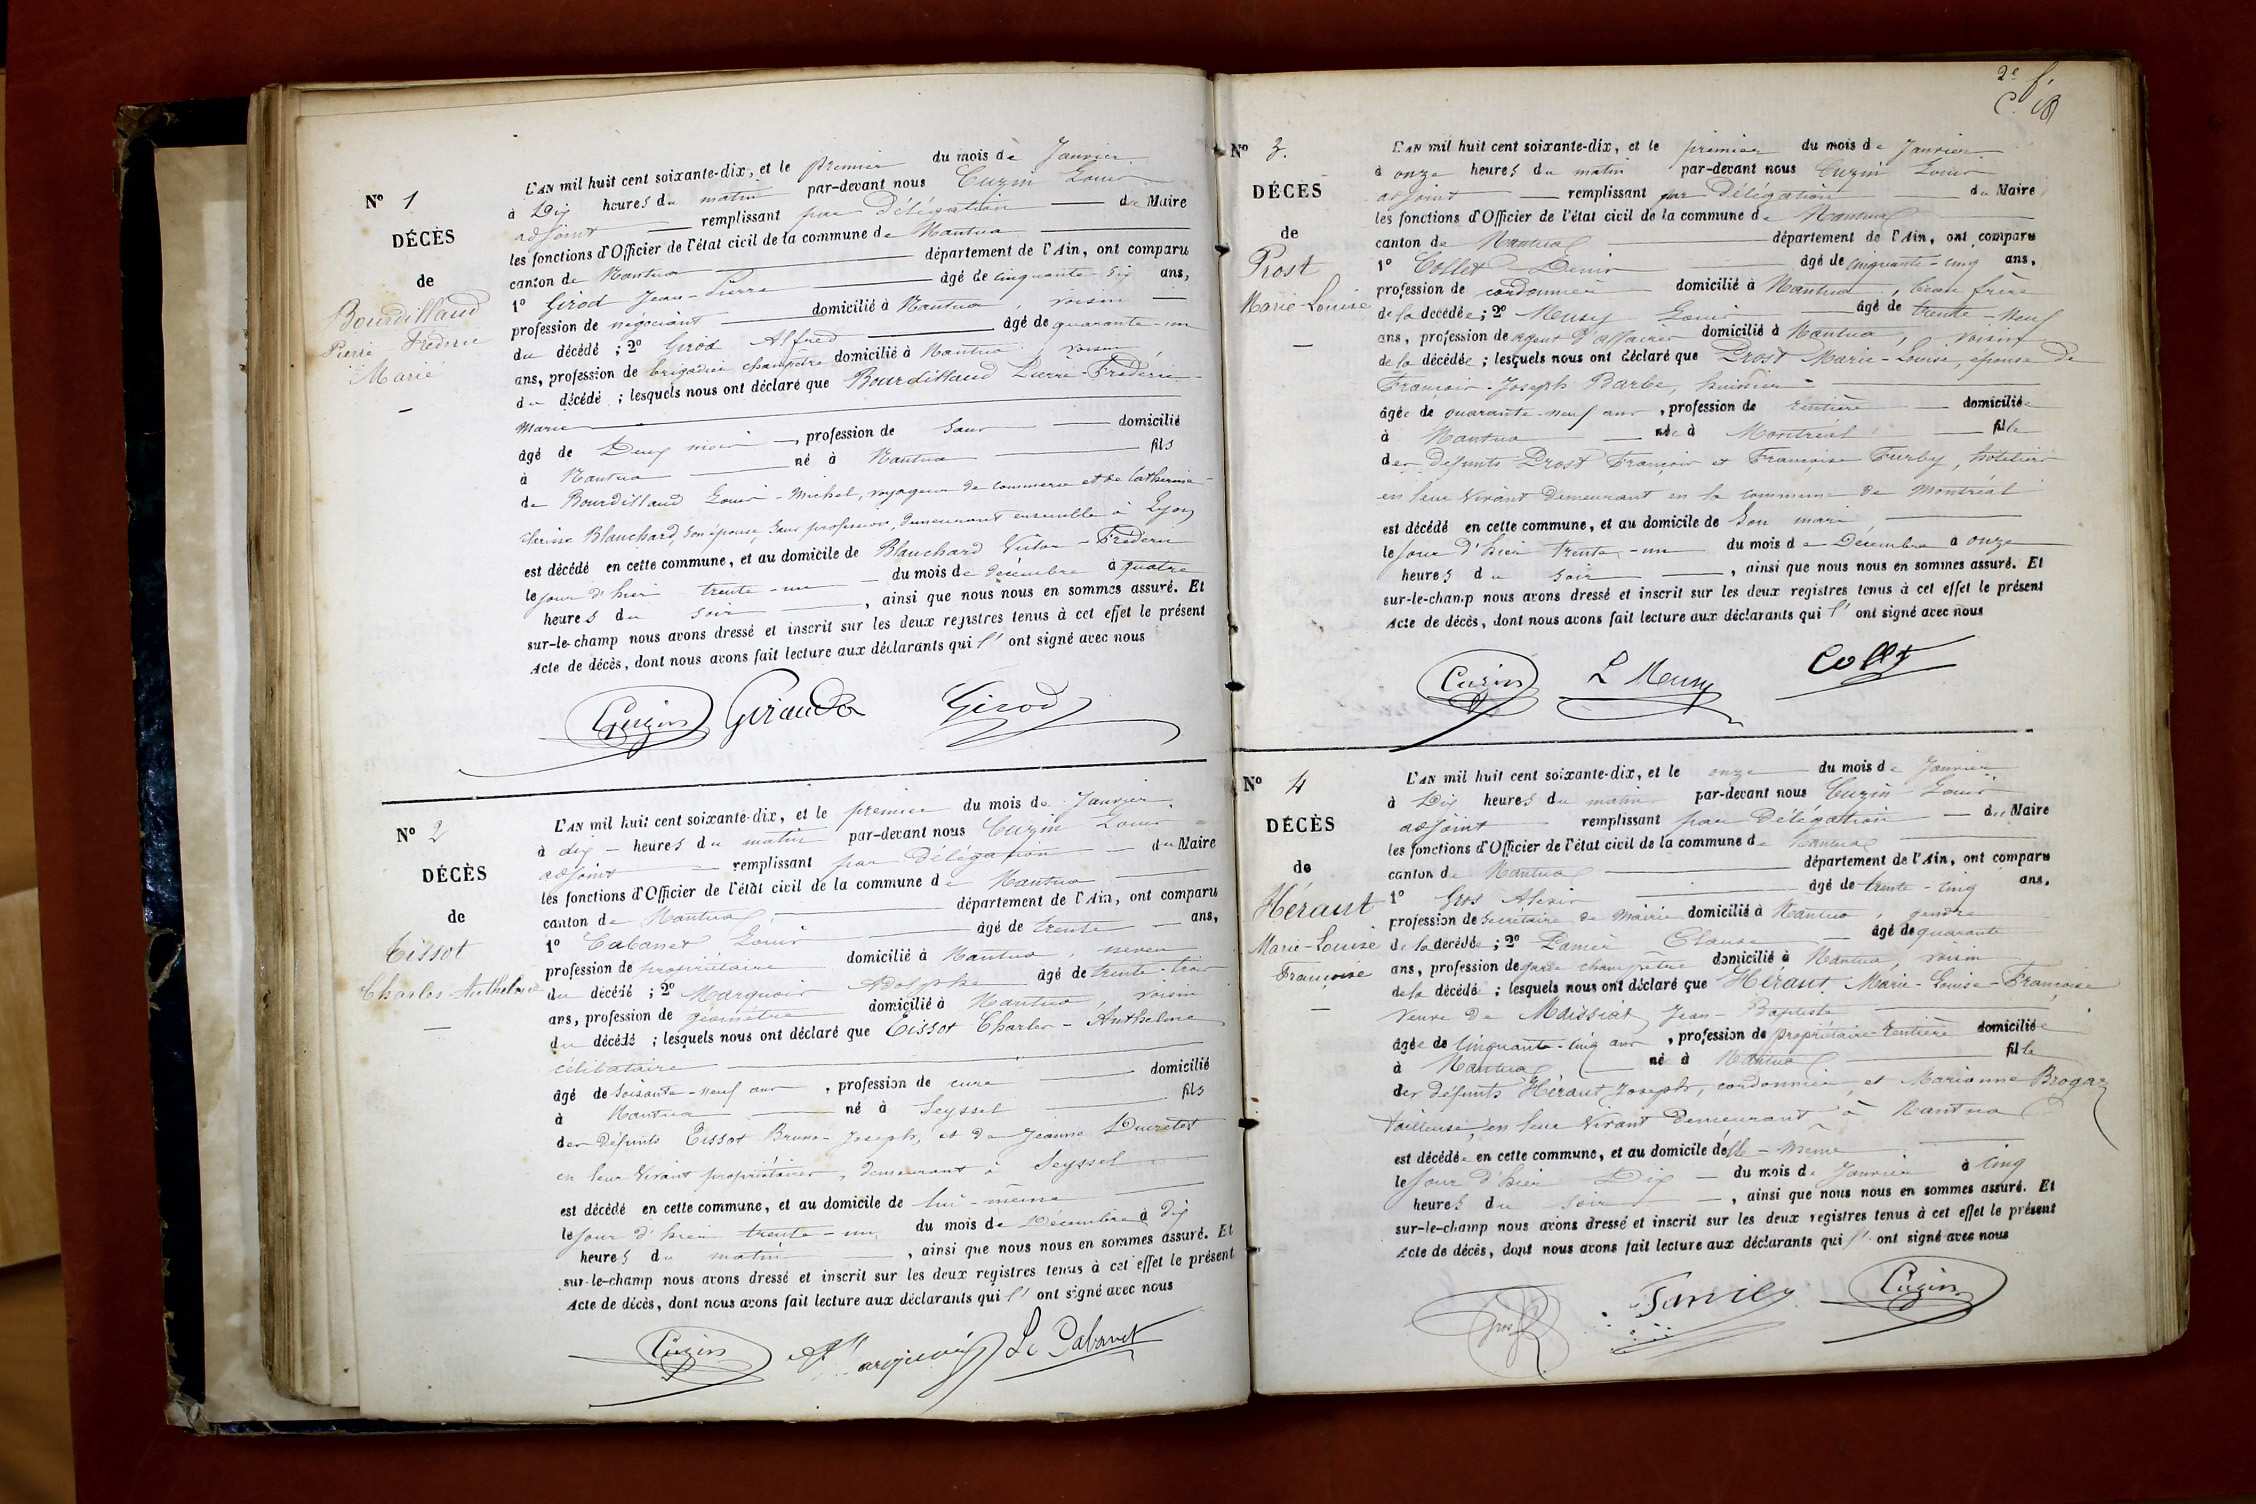 N° 1
DÉCÈS
de
Bourdillaud
Pierre Frédéric
Marie
L'AN mil huit cent soixante-dix, et le premier du mois de Janvier
à Dix heures du matin par-devant nous Cuzin Louis
adjoint remplissant par Délégation du Maire
les fonctions d'Officier de l'état civil de la commune de Nantua
canton de Nantua département de l'Ain, ont comparu
1° Girod Jean-Pierre âgé de cinquante-six ans,
profession de négociant domicilié à Nantua, voisin
du décédé ; 2° Girod Alfred âgé de quarante-un
ans, profession de brigadier champêtre domicilié à Nantua, voisin
du décédé ; lesquels nous ont déclaré que Bourdillaud Pierre-Frédéric-
Marie
âgé de Deux mois, profession de sans domicilié
à Nantua né à Nantua fils
de Bourdillaud Louis-Michel, voyageur de commerce et de Catherine-
Blanchard, son épouse, sans profession, demeurant ensemble à Lyon
est décédé en cette commune, et au domicile de Blanchard Victor-Frédéric
le jour d'hier trente-un du mois de Décembre à quatre
heures du soir, ainsi que nous nous en sommes assuré. Et
sur-le-champ nous avons dressé et inscrit sur les deux registres tenus à cet effet le présent
Acte de décès, dont nous avons fait lecture aux déclarants qui l'ont signé avec nous
Cuzin Girod
N° 2
DÉCÈS
de
Tissot
Charles-Anthelme
L'AN mil huit cent soixante-dix, et le premier du mois de Janvier
à dix heures du matin par-devant nous Cuzin Louis
adjoint remplissant par Délégation du Maire
les fonctions d'Officier de l'état civil de la commune de Nantua
canton de Nantua département de l'Ain, ont comparu
1° Cabanet Louis âgé de trente ans,
profession de propriétaire domicilié à Nantua, neveu
du décédé ; 2° Marquois Adolphe âgé de trente-trois
ans, profession de géomètre domicilié à Nantua, voisin
du décédé ; lesquels nous ont déclaré que Tissot Charles-Anthelme
célibataire
âgé de soixante-neuf ans, profession de curé domicilié
à Nantua né à Seyssel fils
des défunts Tissot Bruno-Joseph, et de Jeanne Ducretet
en leur vivant propriétaires, demeurant à Seyssel
est décédé en cette commune, et au domicile de lui-même
le jour d'hier trente-un du mois de Décembre à dix
heures du matin, ainsi que nous nous en sommes assuré. Et
sur-le-champ nous avons dressé et inscrit sur les deux registres tenus à cet effet le présent
Acte de décès, dont nous avons fait lecture aux déclarants qui l'ont signé avec nous
Cuzin Marquois Ls Cabanet
2e f.
N° 3.
DÉCÈS
de
Prost
Marie-Louise
L'AN mil huit cent soixante-dix, et le premier du mois de Janvier
à onze heures du matin par-devant nous Cuzin Louis
adjoint remplissant par Délégation du Maire
les fonctions d'Officier de l'état civil de la commune de Nantua
canton de Nantua département de l'Ain, ont comparu
1° Collet Denis âgé de cinquante-cinq ans,
profession de cordonnier domicilié à Nantua, beau frère
de la décédée ; 2° Meusy Louis âgé de trente-neuf
ans, profession de agent d'affaires domicilié à Nantua, voisin
de la décédée ; lesquels nous ont déclaré que Prost Marie-Louise, épouse de
François-Joseph Barbe, huissier
âgée de quarante-neuf ans, profession de rentière domiciliée
à Nantua née à Montréal fille
des défunts Prost François et Françoise Furby, hôteliers
en leur vivant demeurant en la commune de Montréal
est décédé en cette commune, et au domicile de son mari,
le jour d'hier trente-un du mois de Décembre à onze
heures du soir, ainsi que nous nous en sommes assuré. Et
sur-le-champ nous avons dressé et inscrit sur les deux registres tenus à cet effet le présent
Acte de décès, dont nous avons fait lecture aux déclarants qui l'ont signé avec nous
Cuzin L Meusy Collet
N° 4
DÉCÈS
de
Héraut
Marie-Louise
Françoise
L'AN mil huit cent soixante-dix, et le onze du mois de Janvier
à Dix heures du matin par-devant nous Cuzin Louis
adjoint remplissant par Délégation du Maire
les fonctions d'Officier de l'état civil de la commune de Nantua
canton de Nantua département de l'Ain, ont comparu
1° Gros Alexis âgé de trente-cinq ans,
profession de secrétaire de Mairie domicilié à Nantua, gendre
de la décédée ; 2° Claude âgé de quarante
ans, profession de garde champêtre domicilié à Nantua, voisin
de la décédée ; lesquels nous ont déclaré que Héraut Marie-Louise-Françoise
veuve de Maissiat Jean-Baptiste
âgée de cinquante-cinq ans, profession de propriétaire rentière domiciliée
à Nantua née à Nantua fille
des défunts Héraut Joseph, cordonnier, et Marianne Brogaz
tailleuse, en leur vivant demeurant à Nantua
est décédée en cette commune, et au domicile d'elle-même
le jour d'hier Dix du mois de Janvier à cinq
heures du soir, ainsi que nous nous en sommes assuré. Et
sur-le-champ nous avons dressé et inscrit sur les deux registres tenus à cet effet le présent
Acte de décès, dont nous avons fait lecture aux déclarants qui l'ont signé avec nous
Gros Cuzin